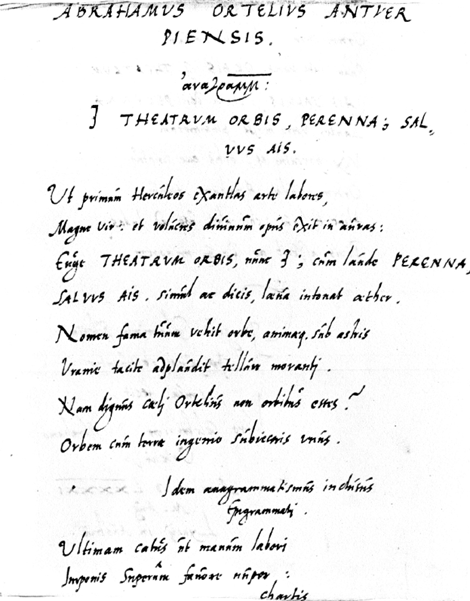 ABRAHAMVS ORTELIVS ANTVER
PIENSIS.
ἀναγραμμ:
I THEATRVM ORBIS, PERENNA; SAL„
VVS AIS.
Ut primùm Herculeos exantlas arte labores,
Magne vir: et volucres divinum opus exit in auras:
Euge THEATRVM ORBIS, nunc I; cum laude PERENNA,
SALVVS AIS. simul ac dicis, laeva intonat aether.
Nomen fama tuum vehit orbe, animaq. sub astris
Uranie tacite adplaudit tellure moranti.
Nam dignus caeli Ortelius non esses?
Orbem cum terrae ingenio subieceris unus.
Idem anagrammatismus inclusus
Epigrammati.
Ultimam catus ut manum labori
Imponis Superûm favore nuper:
chartis